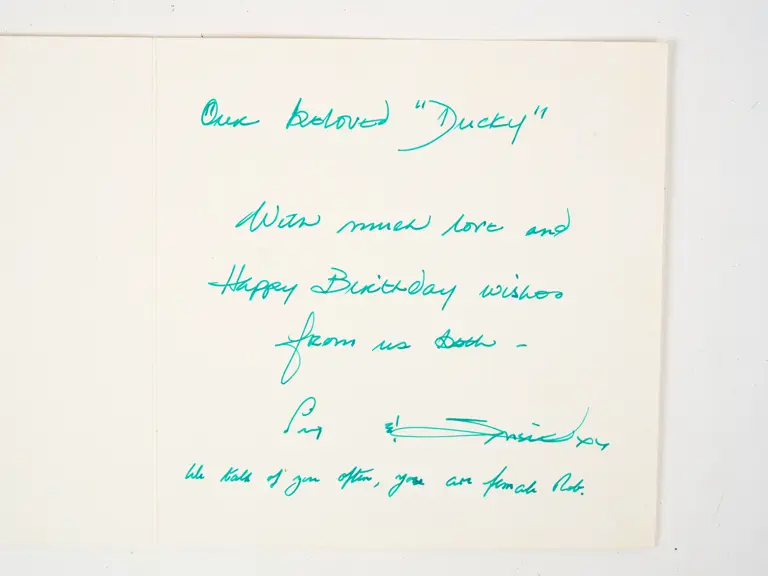 Our beloved "Ducky"
With much love and
Happy Birthday wishes
from us both -
xx
We talk of you often, you are female Rob.